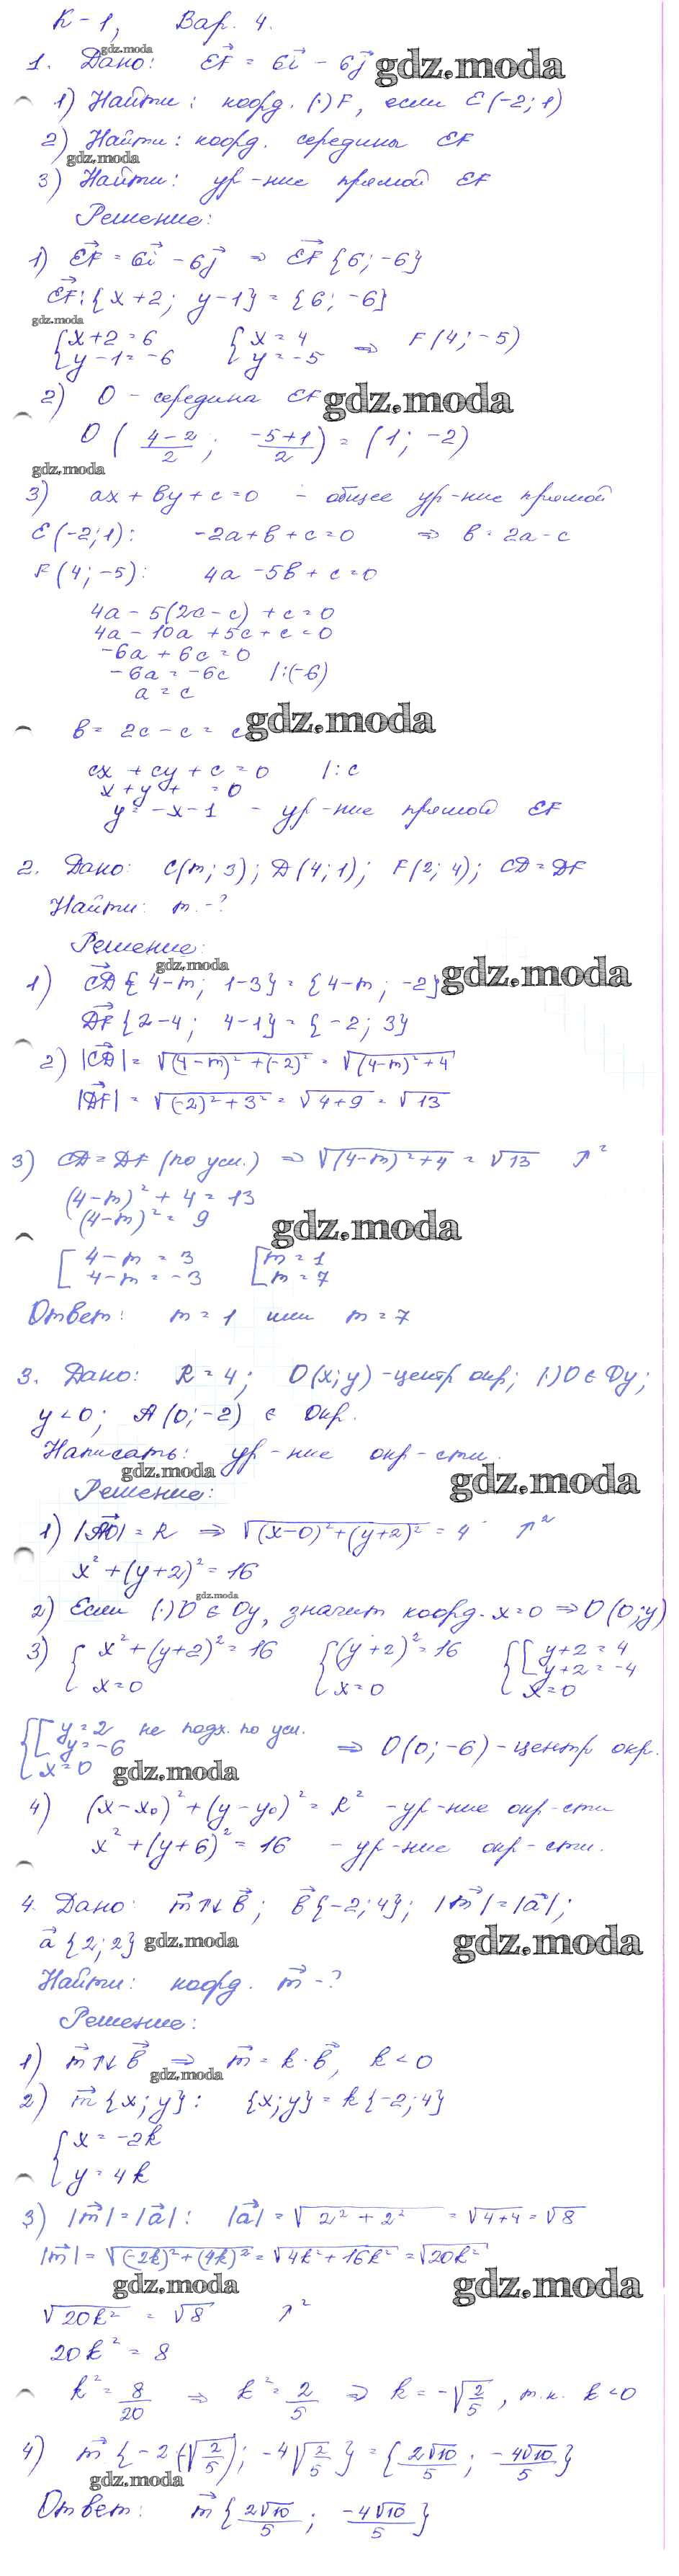 К-1, Вар. 4.
gdz.moda
1. Дано: EF = 6i - 6j gdz.moda
1) Найти: коорд. (·) F, если E(-2; 1)
2) Найти: коорд. середины EF
gdz.moda
3) Найти: ур-ние прямой EF
Решение:
1) EF = 6i - 6j ⇒ EF {6; -6}
EF: {x+2; y-1} = {6; -6}
gdz.moda
{ x+2=6 { x=4 ⇒ F(4; -5)
{ y-1=-6 { y=-5
2) O - середина EF gdz.moda
O ( (4-2)/2 ; (-5+1)/2 ) = (1; -2)
gdz.moda
3) ax + by + c = 0 - общее ур-ние прямой
E(-2; 1): -2a+b+c=0 ⇒ b=2a-c
F(4; -5): 4a-5b+c=0
4a - 5(2a-c) + c = 0
4a - 10a + 5c + c = 0
-6a + 6c = 0
-6a = -6c |:(-6)
a = c
b = 2c - c = c gdz.moda
cx + cy + c = 0 |:c
x + y + = 0
y = -x-1 - ур-ние прямой EF
2. Дано: C(m; 3); D(4; 1); F(2; 4); CD = DF
Найти: m - ?
Решение:
gdz.moda
1) CD {4-m; 1-3} = {4-m; -2} gdz.moda
DF {2-4; 4-1} = {-2; 3}
2) |CD| = √((4-m)² + (-2)²) = √((4-m)² + 4)
|DF| = √((-2)² + 3²) = √(4+9) = √13
3) CD = DF (по усл.) ⇒ √((4-m)² + 4) = √13 ↑²
(4-m)² + 4 = 13
(4-m)² = 9 gdz.moda
[ 4-m = 3 [ m = 1
[ 4-m = -3 [ m = 7
Ответ: m = 1 или m = 7
3. Дано: R = 4; O(x; y) - центр окр; (·) O ∈ Oy;
y < 0; A(0; -2) ∈ Окр.
Написать: ур-ние окр-сти.
gdz.moda gdz.moda
Решение:
1) |AO| = R ⇒ √((x-0)² + (y+2)²) = 4 ↑²
x² + (y+2)² = 16
gdz.moda
2) Если (·) O ∈ Oy, значит коорд. x=0 ⇒ O(0; y)
3) { x² + (y+2)² = 16 { (y+2)² = 16 { [ y+2 = 4
[ y+2 = -4
{ x=0 { x=0 { x=0
{ [ y = 2 не подх. по усл.
[ y = -6 ⇒ O(0; -6) - центр окр.
{ x=0 gdz.moda
4) (x-x₀)² + (y-y₀)² = R² - ур-ние окр-сти
x² + (y+6)² = 16 - ур-ние окр-сти.
4. Дано: m ↑↓ b; b {-2; 4}; |m| = |a|;
a {2; 2} gdz.moda gdz.moda
Найти: коорд. m - ?
Решение:
1) m ↑↓ b ⇒ m = k · b, k < 0
gdz.moda
2) m {x; y}: {x; y} = k {-2; 4}
{ x = -2k
{ y = 4k
3) |m| = |a|: |a| = √(2² + 2²) = √(4+4) = √8
|m| = √((-2k)² + (4k)²) = √(4k² + 16k²) = √(20k²)
gdz.moda gdz.moda
√(20k²) = √8 ↑²
20k² = 8
k² = 8/20 ⇒ k² = 2/5 ⇒ k = -√(2/5), т.к. k < 0
4) m {-2·(-√(2/5)); -4√(2/5)} = {2√10/5; -4√10/5}
gdz.moda
Ответ: m {2√10/5; -4√10/5}